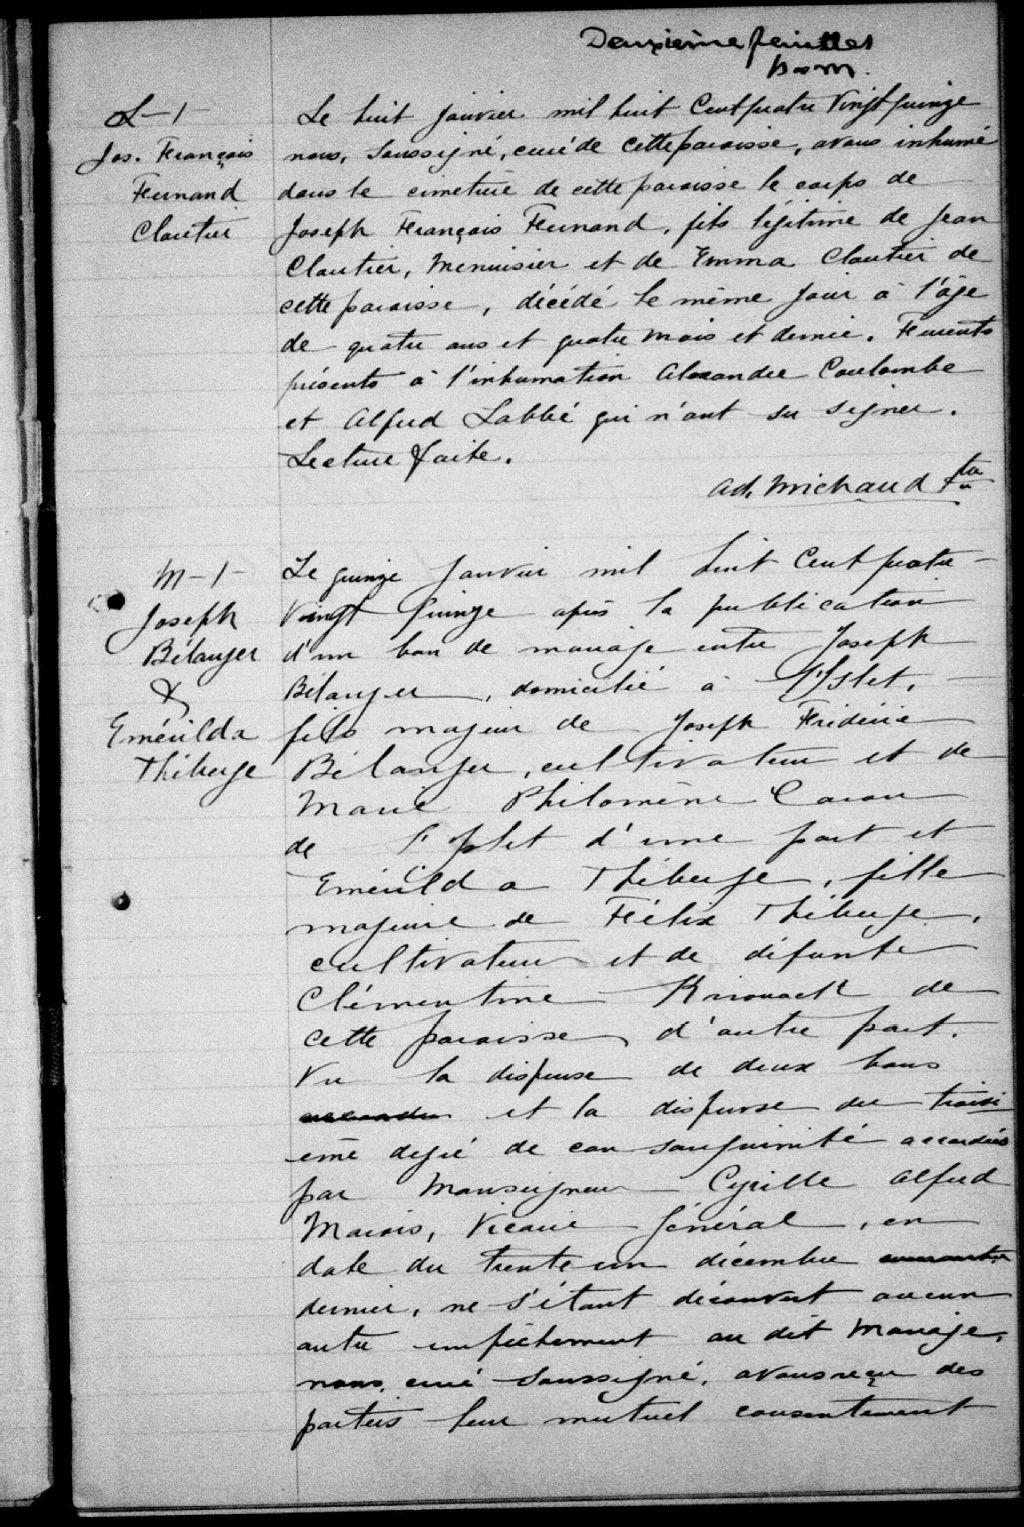 Deuxième feuillet
S-1
Jos. François
Fernand
Cloutier
Le huit janvier mil huit Cent quatre Vingt quinze
nous, Soussigné, curé de cette paroisse, avons inhumé
dans le cimetière de cette paroisse le corps de
Joseph François Fernand, fils légitime de Jean
Cloutier, Menuisier et de Emma Cloutier de
cette paroisse, décédé le même jour à l'âge
de quatre ans et quatre mois et demie. Furent
présents à l'inhumation Alexandre Coulombe
et Alfred Labbé qui n'ont su signer.
Lecture faite.
Ad. Michaud Ptre
M-1-
Joseph
Bélanger
&
Emérilda
Théberge
Le quinze Janvier mil huit Cent quatre-
Vingt Quinze après la publication
d'un ban de mariage entre Joseph
Bélanger, domicilié à l'Islet,
fils majeur de Joseph Frédéric
Bélanger, cultivateur et de
Marie Philomène Caron
de l'Islet d'une part et
Emérilda Théberge, fille
majeure de Félix Théberge,
cultivateur et de défunte
Clémentine Kirouack de
cette paroisse d'autre part.
Vu la dispense de deux bans
et la dispense du troisi
ème degré de consanguinité accordées
par Monseigneur Cyrille Alfred
Marois, Vicaire Général, en
date du trente un décembre
dernier, ne s'étant découvert aucun
autre empêchement au dit Mariage,
nous, curé Soussigné, avons reçu des
parties leur mutuel consentement